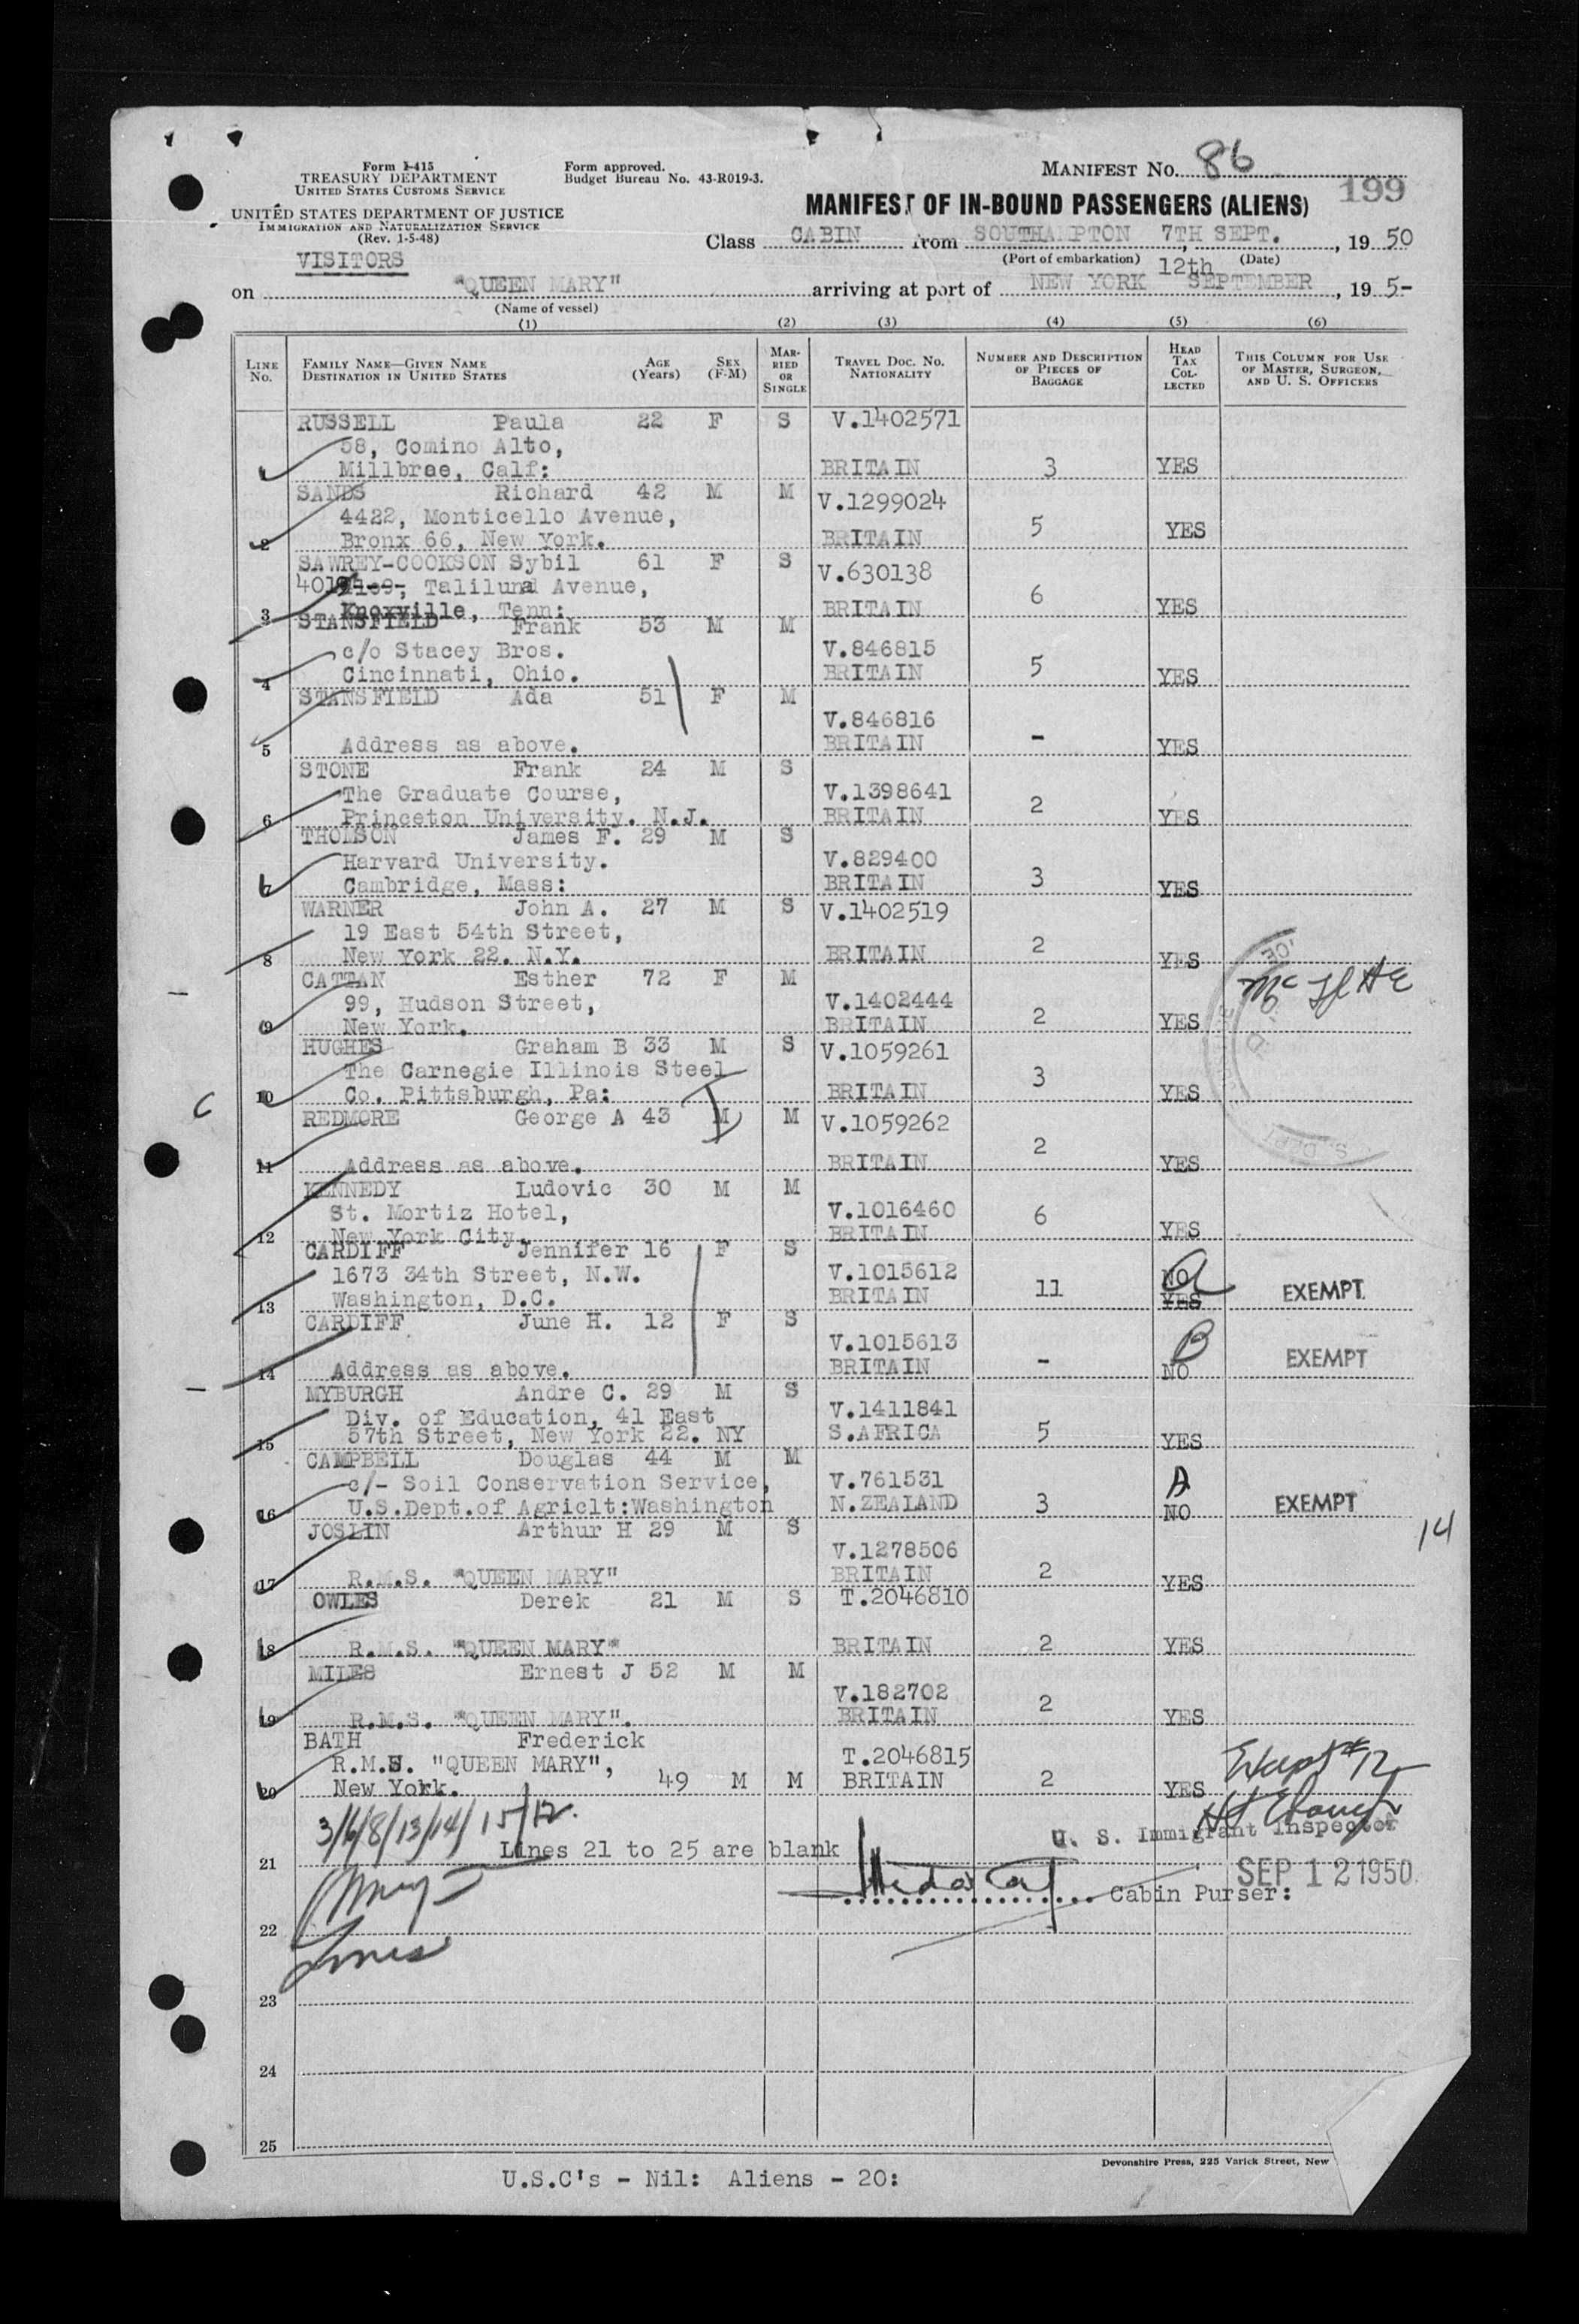 Form I-415
TREASURY DEPARTMENT
UNITED STATES CUSTOMS SERVICE
UNITED STATES DEPARTMENT OF JUSTICE
IMMIGRATION AND NATURALIZATION SERVICE
(Rev. 1-5-48)
VISITORS
Form approved.
Budget Bureau No. 43-R019-3.
MANIFEST NO. 86
199
MANIFEST OF IN-BOUND PASSENGERS (ALIENS)
Class CABIN from SOUTHAMPTON 7TH SEPT., 19 50
(Port of embarkation) (Date)
12th
on "QUEEN MARY" arriving at port of NEW YORK SEPTEMBER, 19 5-
(Name of vessel)
(1) (2) (3) (4) (5) (6)
LINE No. FAMILY NAME—GIVEN NAME DESTINATION IN UNITED STATES AGE (Years) SEX (F-M) MARRIED OR SINGLE TRAVEL DOC. NO. NATIONALITY NUMBER AND DESCRIPTION OF PIECES OF BAGGAGE HEAD TAX COLLECTED THIS COLUMN FOR USE OF MASTER, SURGEON, AND U. S. OFFICERS
RUSSELL Paula 22 F S V.1402571
58, Comino Alto,
1 Millbrae, Calf: BRITAIN 3 YES
SANDS Richard 42 M M V.1299024
4422, Monticello Avenue,
2 Bronx 66, New York. BRITAIN 5 YES
SAWREY-COOKSON Sybil 61 F S V.630138
Taliluna Avenue,
3 Knoxville, Tenn: BRITAIN 6 YES
STANSFIELD Frank 53 M M
c/o Stacey Bros. V.846815
4 Cincinnati, Ohio. BRITAIN 5 YES
STANSFIELD Ada 51 F M
V.846816
5 Address as above. BRITAIN - YES
STONE Frank 24 M S
The Graduate Course, V.1398641
6 Princeton University. N.J. BRITAIN 2 YES
THOLSON James F. 29 M S
Harvard University. V.829400
7 Cambridge, Mass: BRITAIN 3 YES
WARNER John A. 27 M S V.1402519
19 East 54th Street,
8 New York 22. N.Y. BRITAIN 2 YES
CATTAN Esther 72 F M
99, Hudson Street, V.1402444
9 New York. BRITAIN 2 YES
HUGHES Graham B 33 M S V.1059261
The Carnegie Illinois Steel
C 10 Co. Pittsburgh, Pa: BRITAIN 3 YES
REDMORE George A 43 M M V.1059262
11 Address as above. BRITAIN 2 YES
KENNEDY Ludovic 30 M M
St. Mortiz Hotel, V.1016460
12 New York City BRITAIN 6 YES
CARDIFF Jennifer 16 F S
1673 34th Street, N.W. V.1015612 NO
13 Washington, D.C. BRITAIN 11 YES EXEMPT
CARDIFF June H. 12 F S
V.1015613 B
14 Address as above. BRITAIN - NO EXEMPT
MYBURGH Andre C. 29 M S
Div. of Education, 41 East V.1411841
15 57th Street, New York 22. NY S.AFRICA 5 YES
CAMPBELL Douglas 44 M M
c/- Soil Conservation Service, V.761531 A
16 U.S.Dept.of Agriclt:Washington N.ZEALAND 3 NO EXEMPT
14
JOSLIN Arthur H 29 M S
V.1278506
17 R.M.S. "QUEEN MARY" BRITAIN 2 YES
OWLES Derek 21 M S T.2046810
18 R.M.S. "QUEEN MARY" BRITAIN 2 YES
MILES Ernest J 52 M M
V.182702
19 R.M.S. "QUEEN MARY". BRITAIN 2 YES
BATH Frederick
R.M.S. "QUEEN MARY", T.2046815
20 New York. 49 M M BRITAIN 2 YES
3/6/8/13/14/15/12.
U. S. Immigrant Inspector
21 Lines 21 to 25 are blank
SEP 12 1950
Cabin Purser:
22
23
24
25
Devonshire Press, 225 Varick Street, New
U.S.C's - Nil: Aliens - 20: